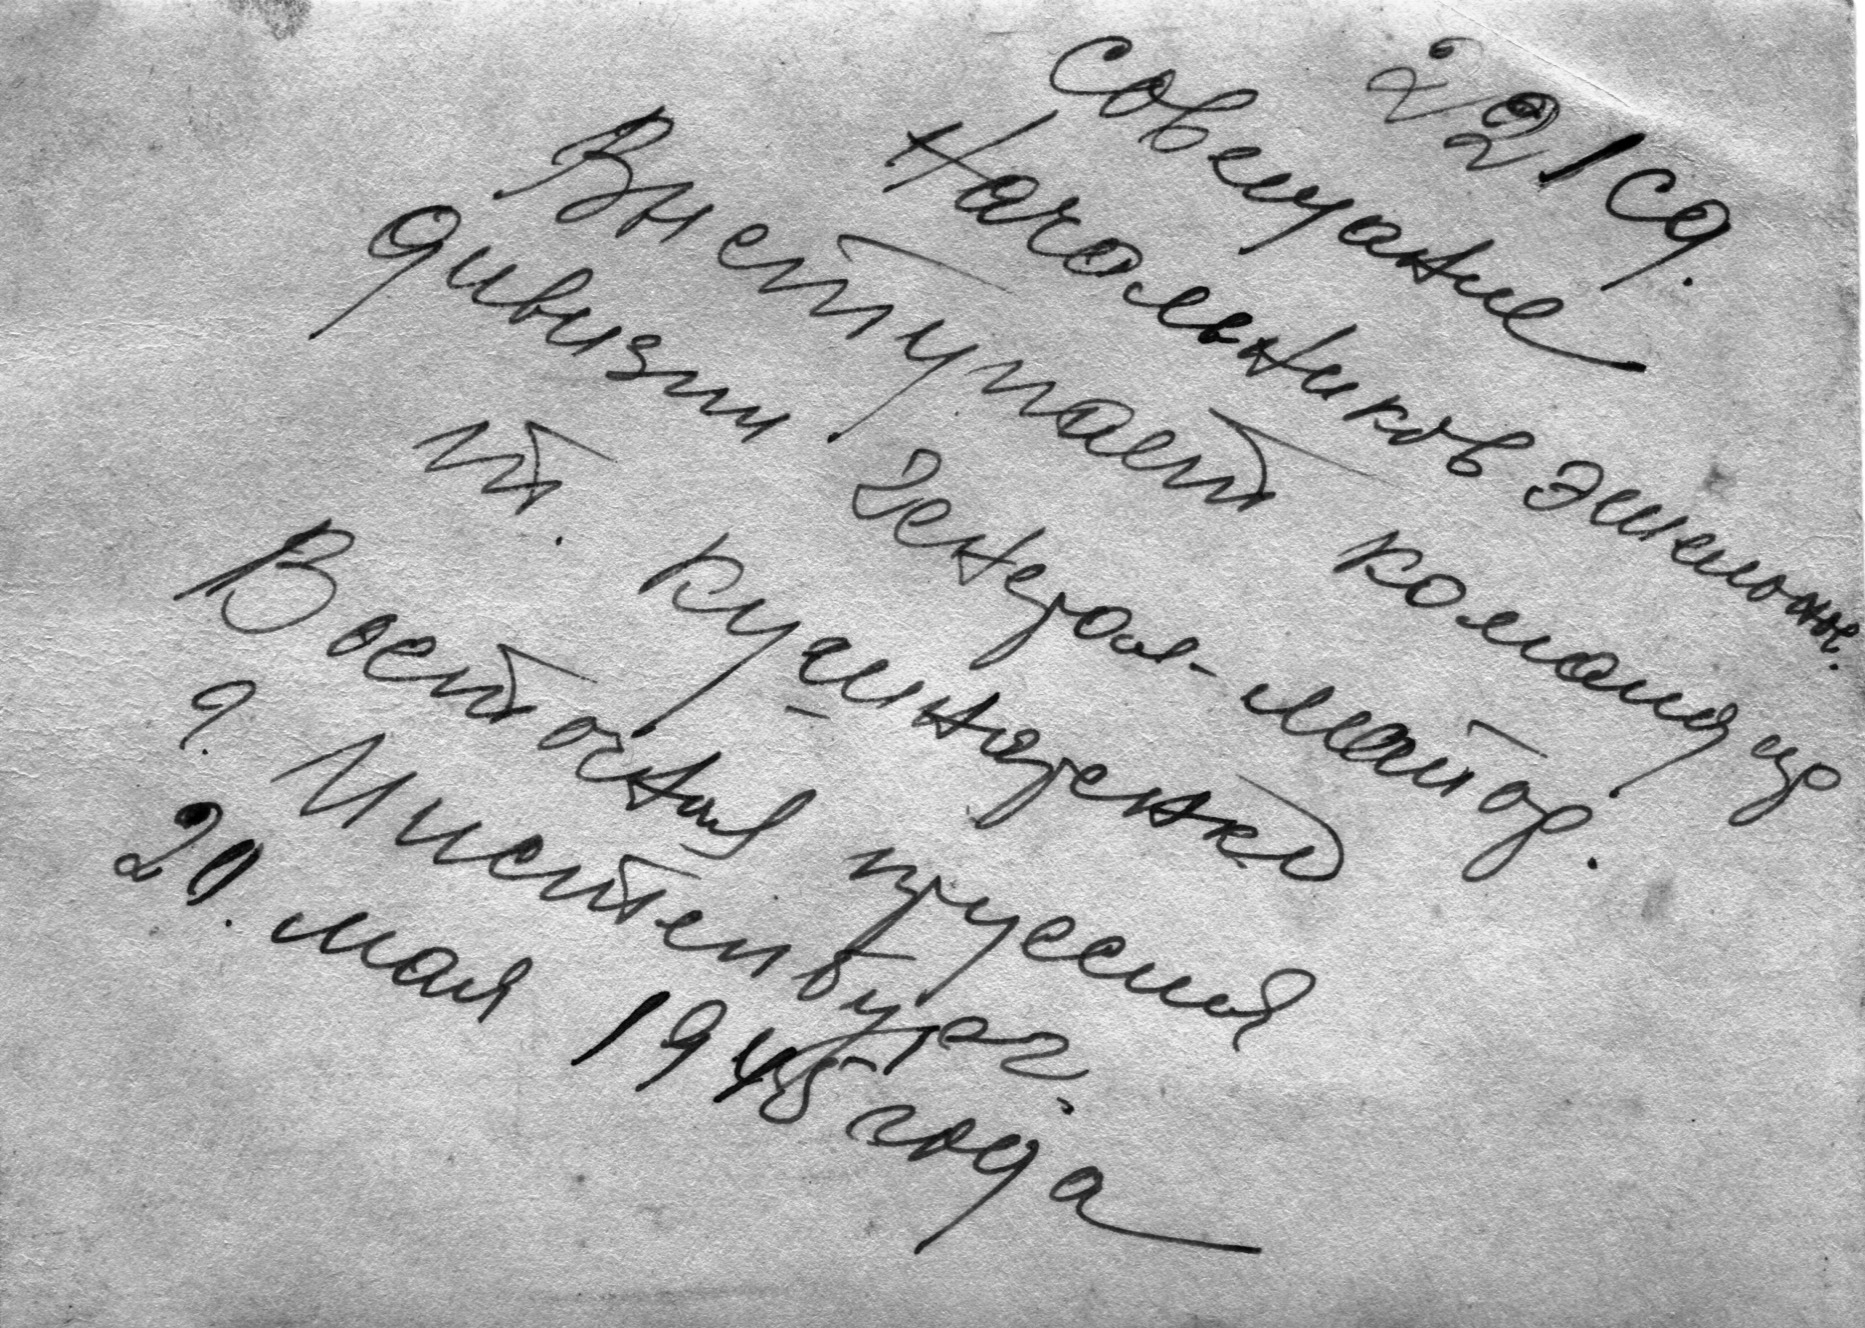 221 сд.
Совещание
Начальников эшелонн.
Выступает командир
дивизии генерал-майор.
т. Кушнаренко
Восточная Пруссия
г. Инстенбург.
20. мая 1945 года